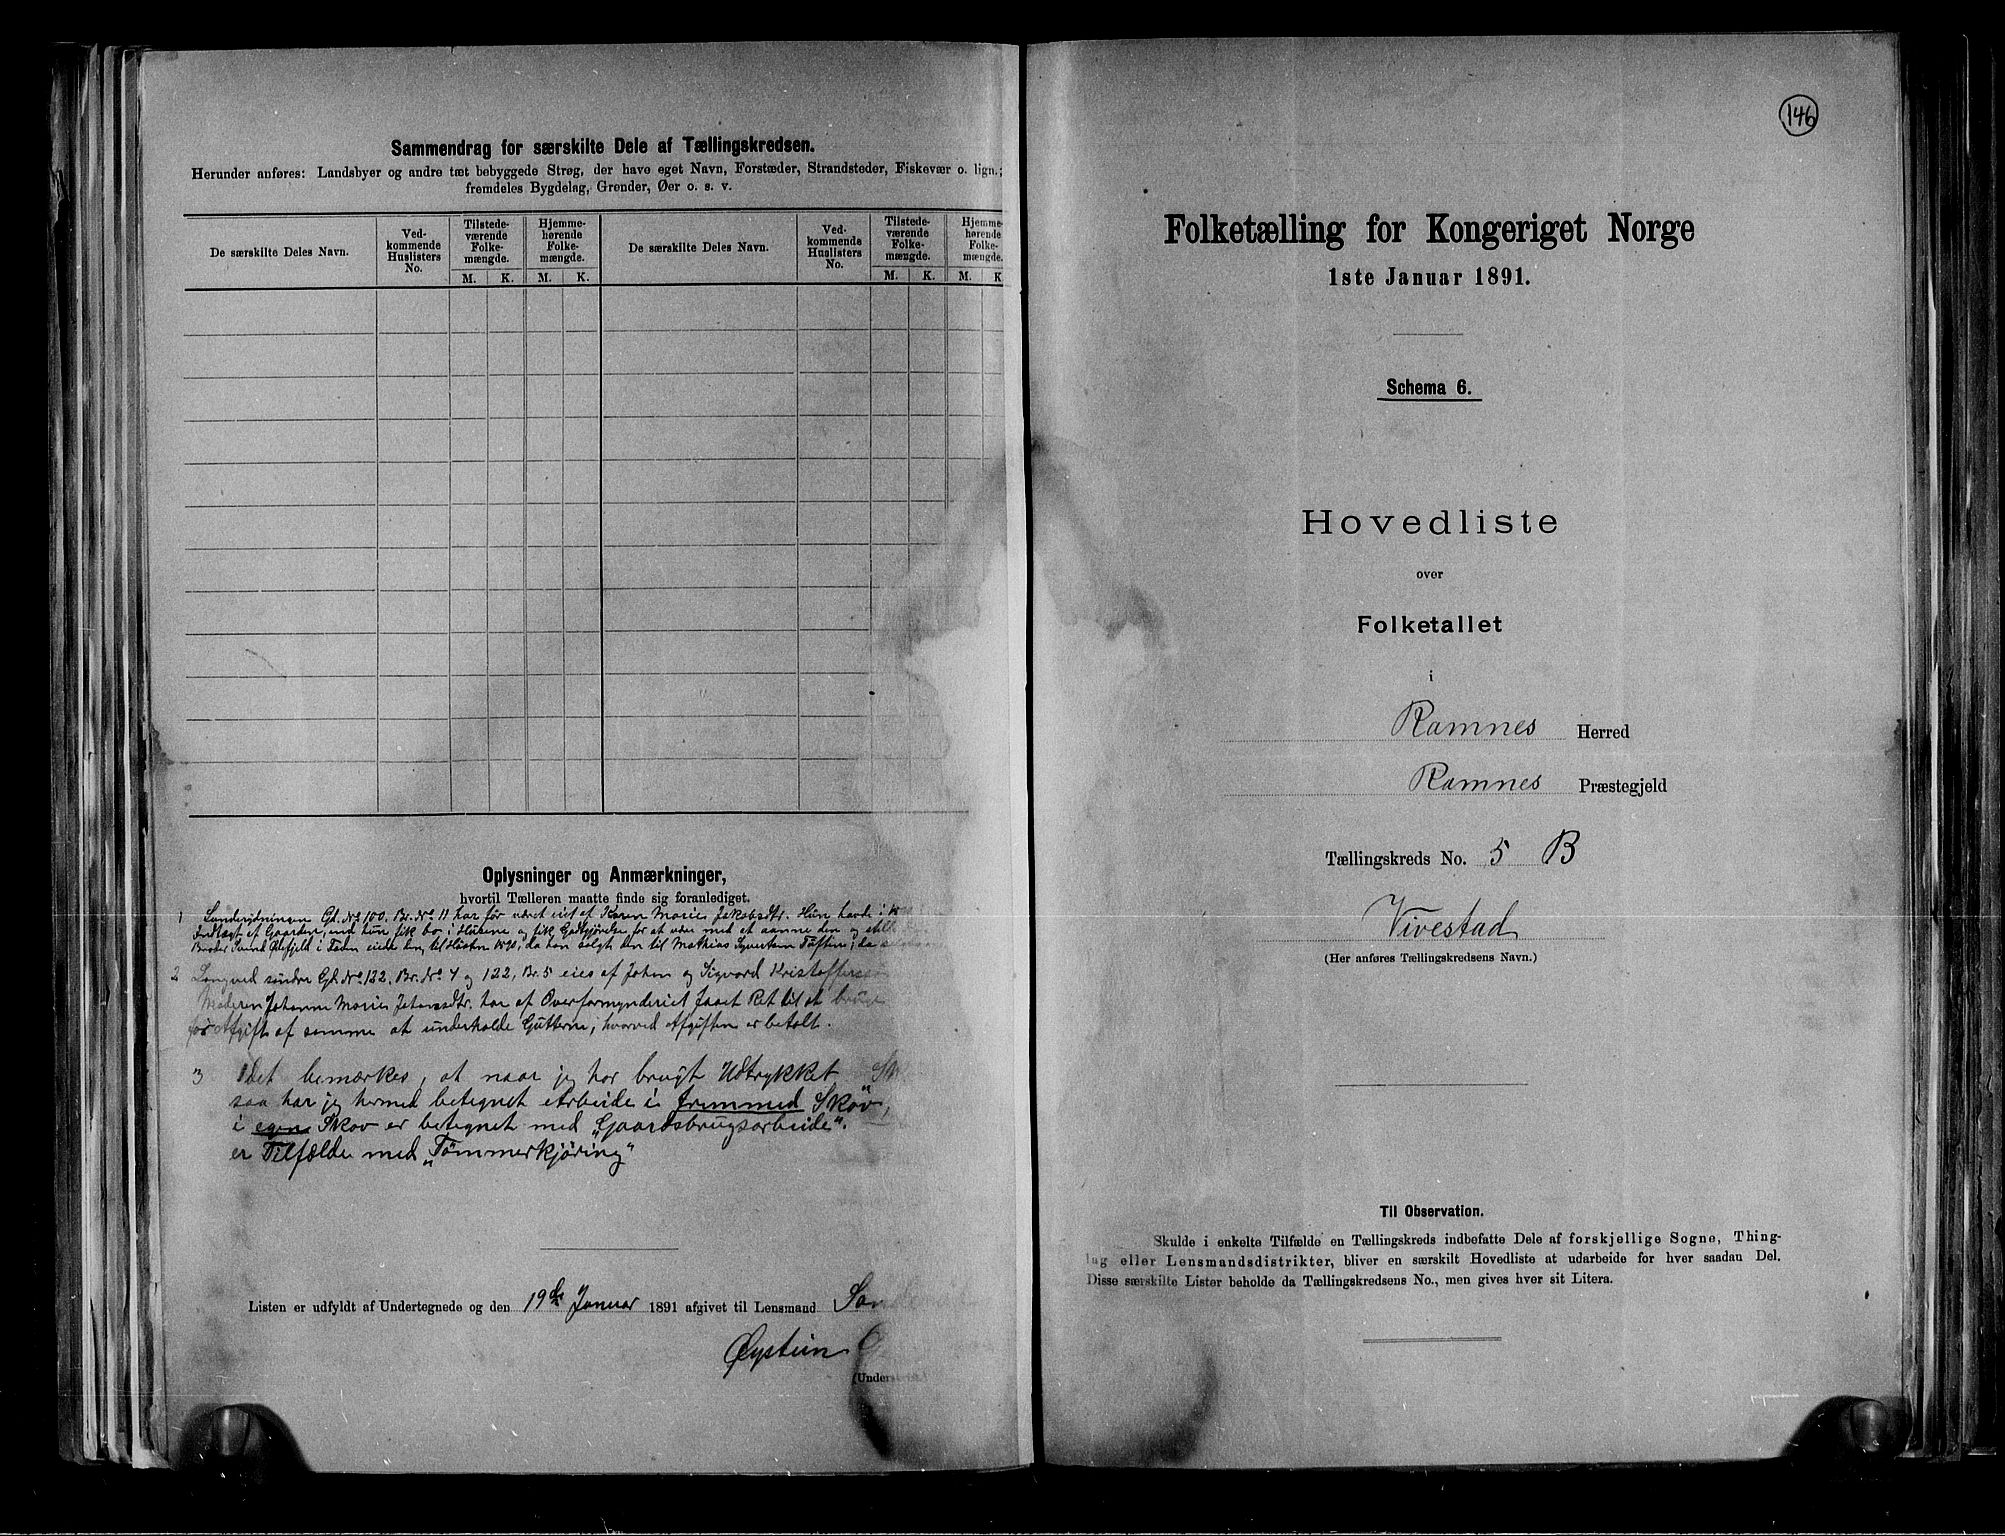 Sammendrag for særskilte Dele af Tællingskredsen.
Herunder anføres: Landsbyer og andre tæt bebyggede Strøg, der have eget Navn, Forstæder, Strandsteder, Fiskevær o. lign.;
fremdeles Bygdelag, Grender, Øer o. s. v.
De særskilte Deles Navn.
Ved-
kommende
Huslisters
No.
Tilstede-
værende
Folke-
mængde.
M. K.
Hjemme-
hørende
Folke-
mængde.
M. K.
De særskilte Deles Navn.
Ved-
kommende
Huslisters
No.
Tilstede-
værende
Folke-
mængde.
M. K.
Hjemme-
hørende
Folke-
mængde.
M. K
Oplysninger og Anmærkninger,
hvortil Tælleren maatte finde sig foranlediget.
1 Gd. No 100. Br. No 11 har før været eiet af Karen Marie Jakobsdtr. Hun havde i
Indtægt af Gaarden, end hun fik bo i Husene og fik Godtgjørelse for at være med at
Broder i eiede den til Høsten 1890, da han solgt den til Mathias Syvertsen
2 søndre Gd. No 122, Br. No 4 og 122, Br. 5 eies af Johan og Sigvard
Moderen Johanne Marie Johansdtr. har af Overformynderiet faaet Ret til at bruge
for Afgift af samme at underholde Gutterne, hvorved Afgiften er betalt.
3 Det bemærkes, at naar jeg har brugt Udtrykket
saa har jeg hermed betegnet Arbeide i fremmed Skov,
i egen Skov er betegnet med „Gaardsbrugsarbeide“.
er Tilfælde med „Tømmerkjøring“
Listen er udfyldt af Undertegnede og den 19de Januar 1891 afgivet til Lensmand
Øystein
(Unders
146
Folketælling for Kongeriget Norge
1ste Januar 1891.
Schema 6.
Hovedliste
over
Folketallet
i
Ramnes Herred
Ramnes Præstegjeld
Tællingskreds No. 5 B
Vivestad
(Her anføres Tællingskredsens Navn.)
Til Observation.
Skulde i enkelte Tilfælde en Tællingskreds indbefatte Dele af forskjellige Sogne, Thing-
lag eller Lensmandsdistrikter, bliver en særskilt Hovedliste at udarbeide for hver saadan Del.
Disse særskilte Lister beholde da Tællingskredsens No., men gives hver sit Litera.